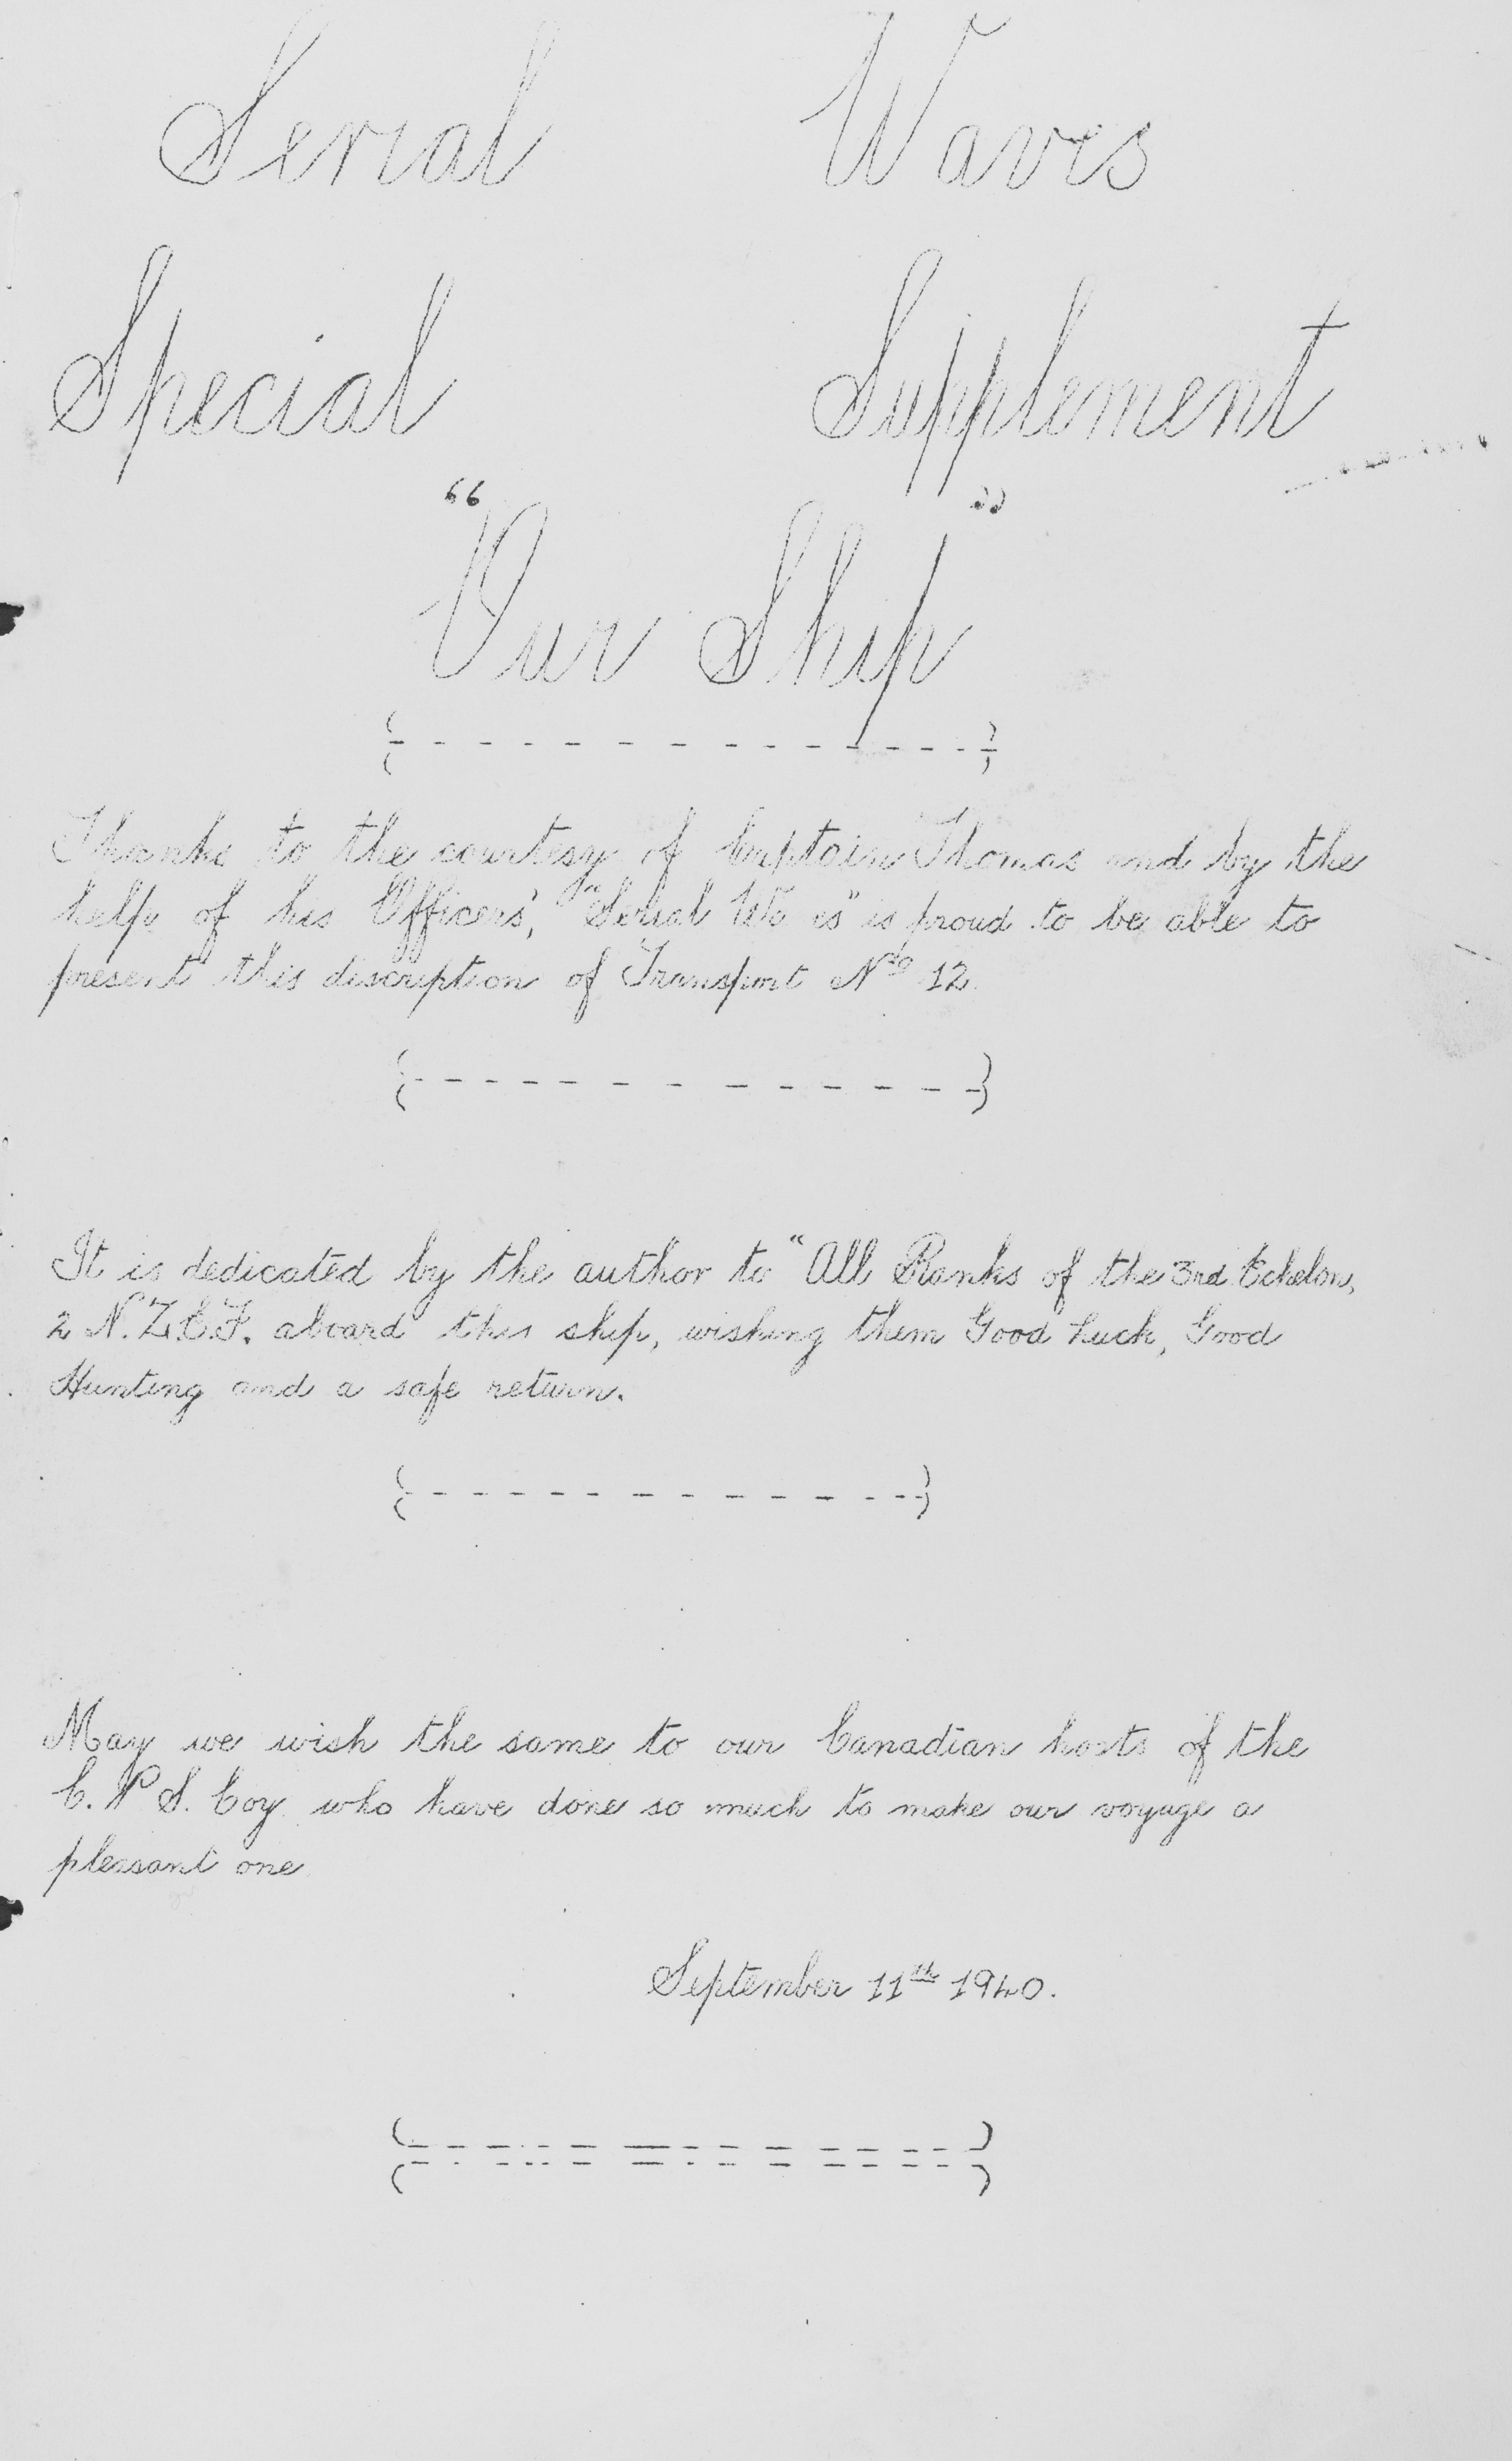 Serial Waves
Special Supplement
"Our Ship"
Thanks to the courtesy of Captain Thomas and by the
help of his Officers, "Serial Wa es" is proud to be able to
present this discription of Transport No 12.
It is dedicated by the author to "All Ranks of the 3rd Echelon,
2 N.Z.E.F. aboard this ship, wishing them Good Luck, Good
Hunting and a safe return.
May we wish the same to our Canadian hosts of the
C.P.S. Coy. who have done so much to make our voyage a
pleasant one
September 11th 1940.